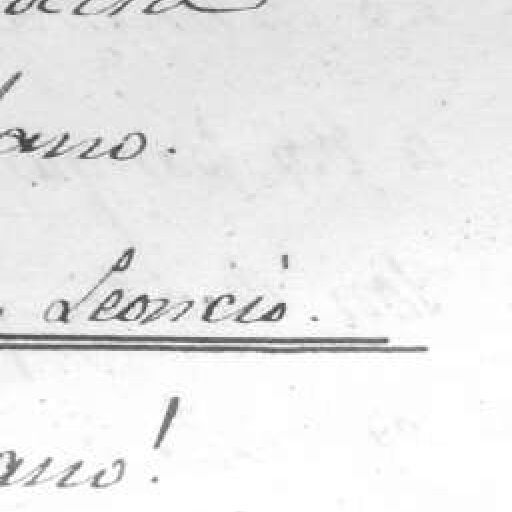 ano.
Leoncio.
ano!